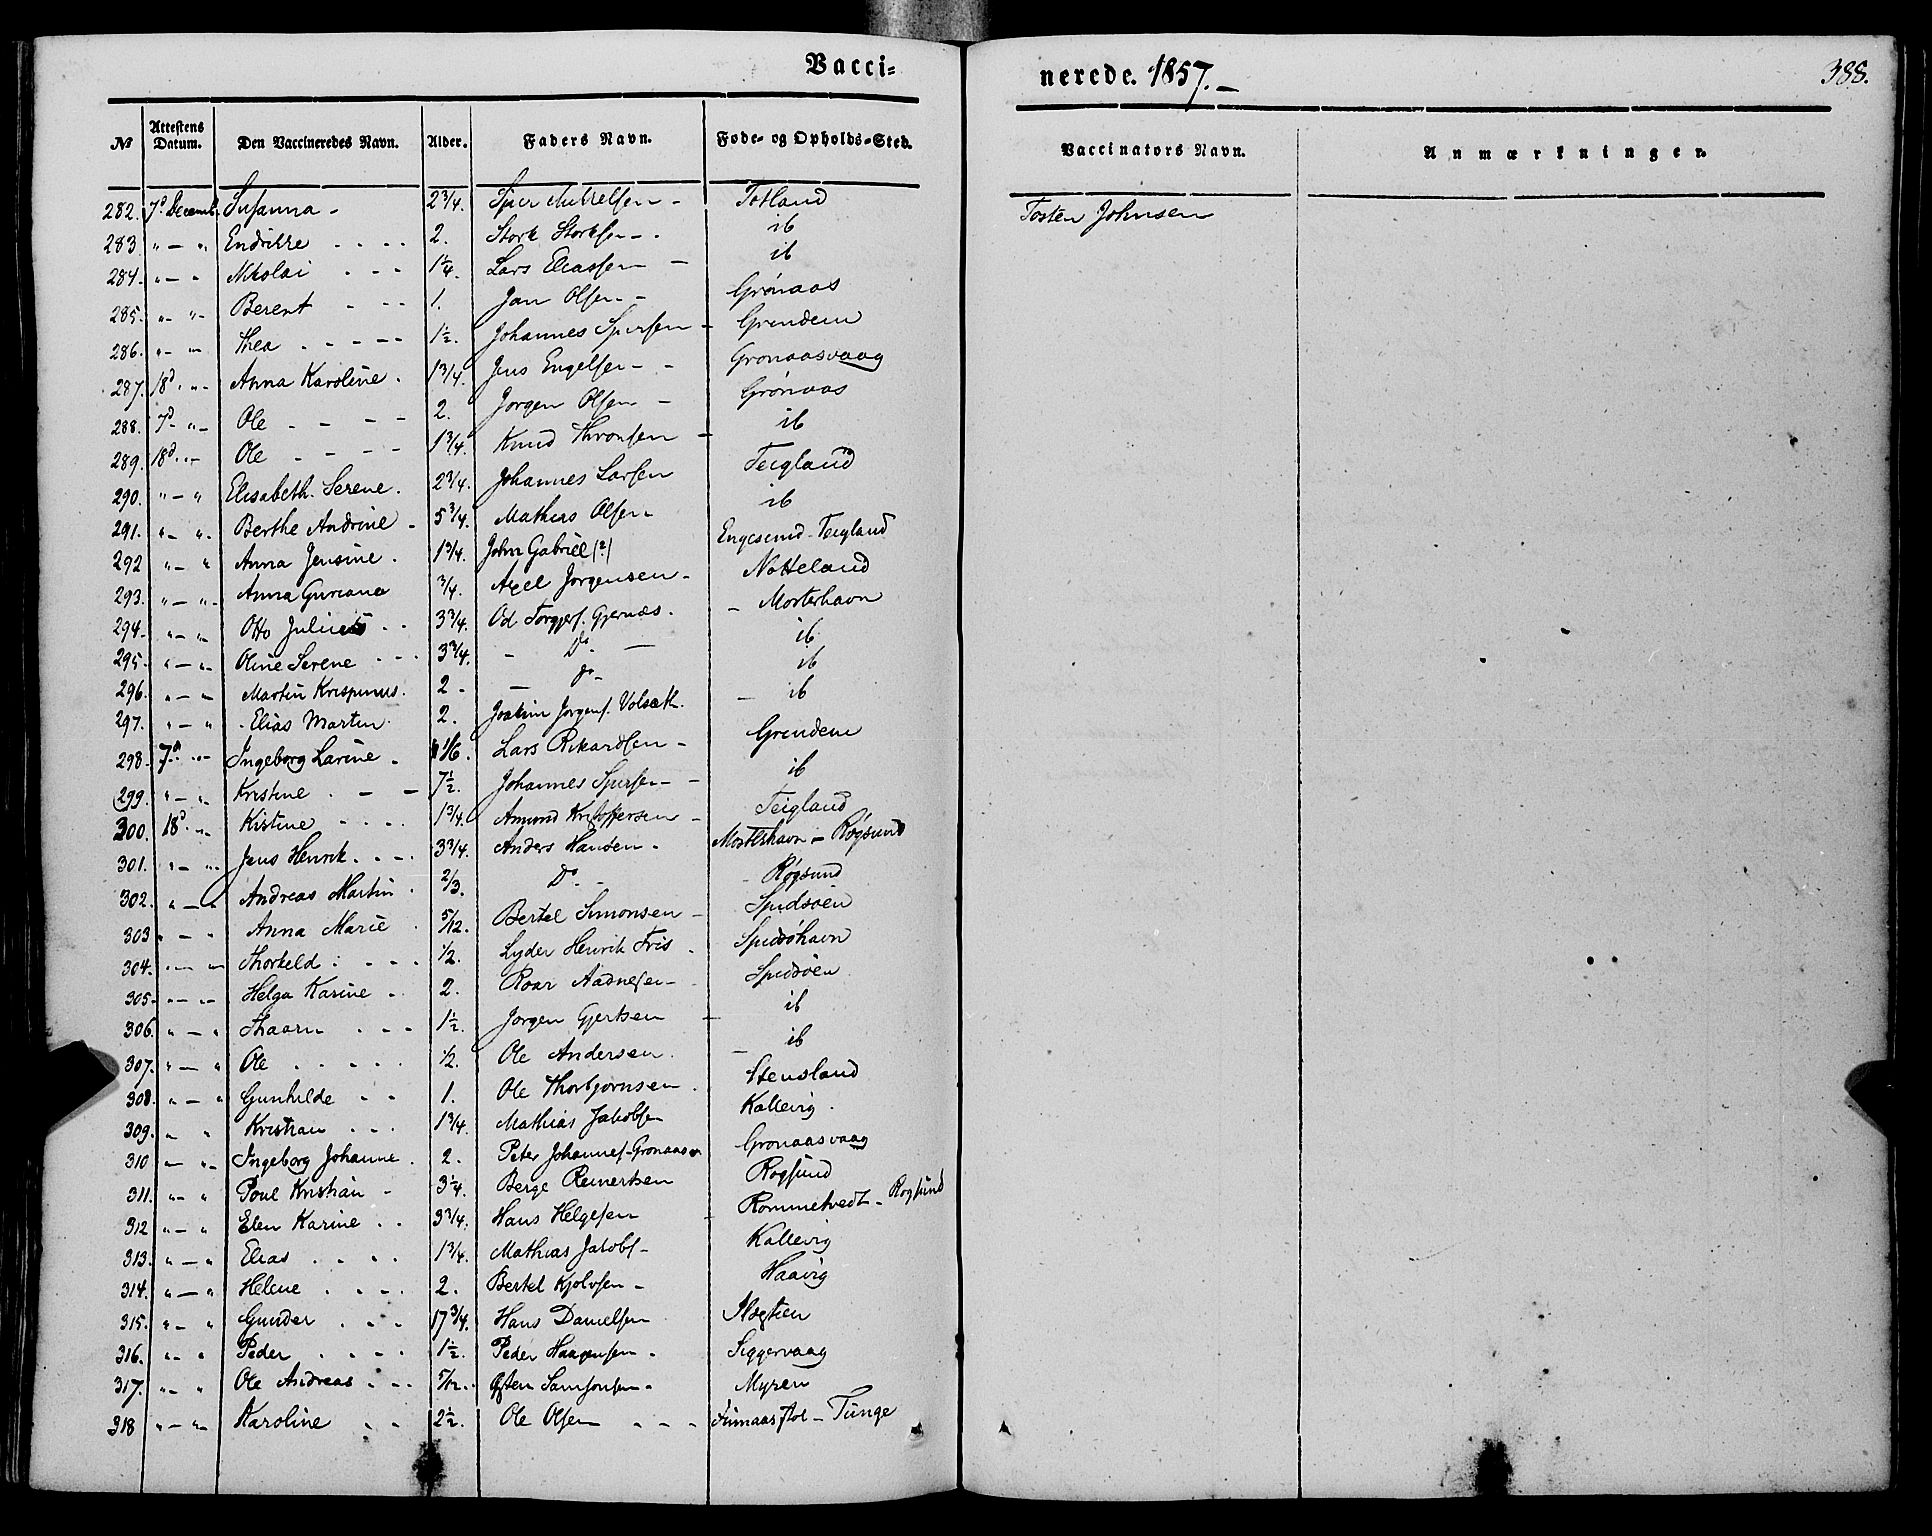 Vacci=
nerede. 1857.
388.
№ Attestens Datum. Den Vaccineredes Navn. Alder. Faders Navn. Føde- og Opholds-Sted. Vaccinators Navn. Anmærkninger.
282. 7d Decemb. Susanna - 2 3/4. Sjur - Totland Tosten Johnsen
283 " - " Endrikke 2. Stork Storksen - ib
284. " - " Nikolai 1 1/4. Lars Eliassen - ib
285. " - " Berent 1. Jan Olsen - Grönaas
286. " - " Thea 1 1/2. Johannes Sjursen - Grindem
287. 18d " - Anna Karoline. 1 3/4. Jens Engelsen - Grönaasvaag
288. 7d " - Ole 2. Jorgen Olsen - Grönaas
289. 18d " - Ole 1 3/4. Knud - ib
290. " - " Elisabeth Serene. 2 3/4. Johannes Larsen Teigland
291. " - " Berthe Andrine - 5 3/4. Mathias Olsen ib
292 " - " Anna Jensine. 1 3/4. John Gabriel (?) Engesund - Teigland
293. " - " Anna Guriane 3/4. Axel Jorgensen - Notteland
294. " - " Otto Julius 3 3/4. Od Torgjers. Gjernæs. - Mosterhavn
295. " - " Oline Serene 3 3/4. - Do - ib
296. " - " Martin Krispinus. 2 - - do - ib
297. " - " Elias Martin. 2. Joakim Jorgens. - ib
298. 7d " - Ingeborg Larine - 1/6. Lars Rikardsen - Grindem
299. " - " Kristine 7 1/2. Johannes Sjursen - ib
300. 18d " - Kistine 1 3/4. Amund Kristoffersen - Teigland
301. " - " Jens Henrik 3 3/4. Anders Hansen - Mosterhavn - Rögsund
302. " - " Andreas Martin 2/3. Do - - Rögsund
303 " - " Anna Marie 5/12. Bertel Simonsen - Spidsöen
304. " - " Thorkeld 1/2. Lyder Henrik Fris Spidsöhavn
305 - " - " Helga Karine 2. Roar Aadnesen - Spidsöen
306. " - " 1 1/2. Jorgen Gjertsen - ib
307. " - " Ole 1/2. Ole Andersen. - ib
308. " - " Gunhilde 1. Ole Thorbjornsen. Stensland
309. " " Kristian 1 3/4. Mathias Jakobsen Kallevig.
310 " - " Ingeborg Johanne. 2. Peter Johannes. Gronaas Gronaasvaag
311. " - " Poul Kristian - 3 1/4. Berge Reinertsen Rogsund
312 " - " Elen Karine 3 3/4. Hans Helgesen - Rommetvedt - Rogsund
313. " - " Elias 1 3/4. Mathias Jakobs - Kallevig
314. " - " Helene 2. Bertel Kjolvsen - Haavig
315. " - " Gunder 17 3/4. Hans Danielsen
316. " - " Peder 1 1/2. Peder Haagensen - Siggervaag
317. " - " Ole Andreas 5/12. Östen Samsonsen - Myren
318 " - " Karoline 2 1/2. Ole Olsen - Tunge